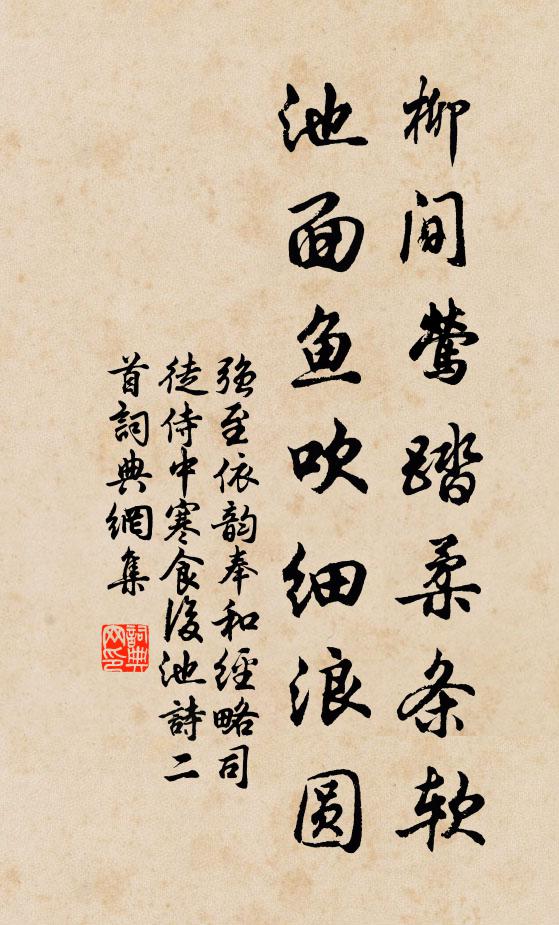 柳间莺踏柔条软
池面鱼吹细浪圆
强至依韵奉和经略司
徒侍中寒食后池詩二
首詞典網集
詞典
网印